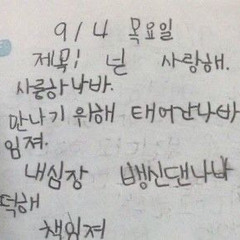 9/4 목요일
제목: 넌 사랑해.
사릉하나바.
만나기 위해 태어난나바
임져.
내심장 뱅신댄나나
덕해
책임져